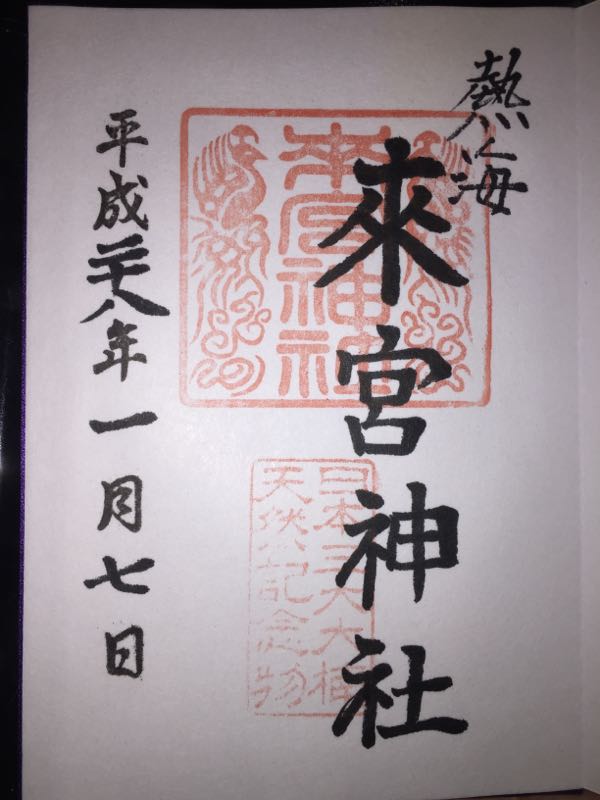 熱海
來宮神社
來宮神社
日本三大大楠
天然記念物
平成二十八年一月七日